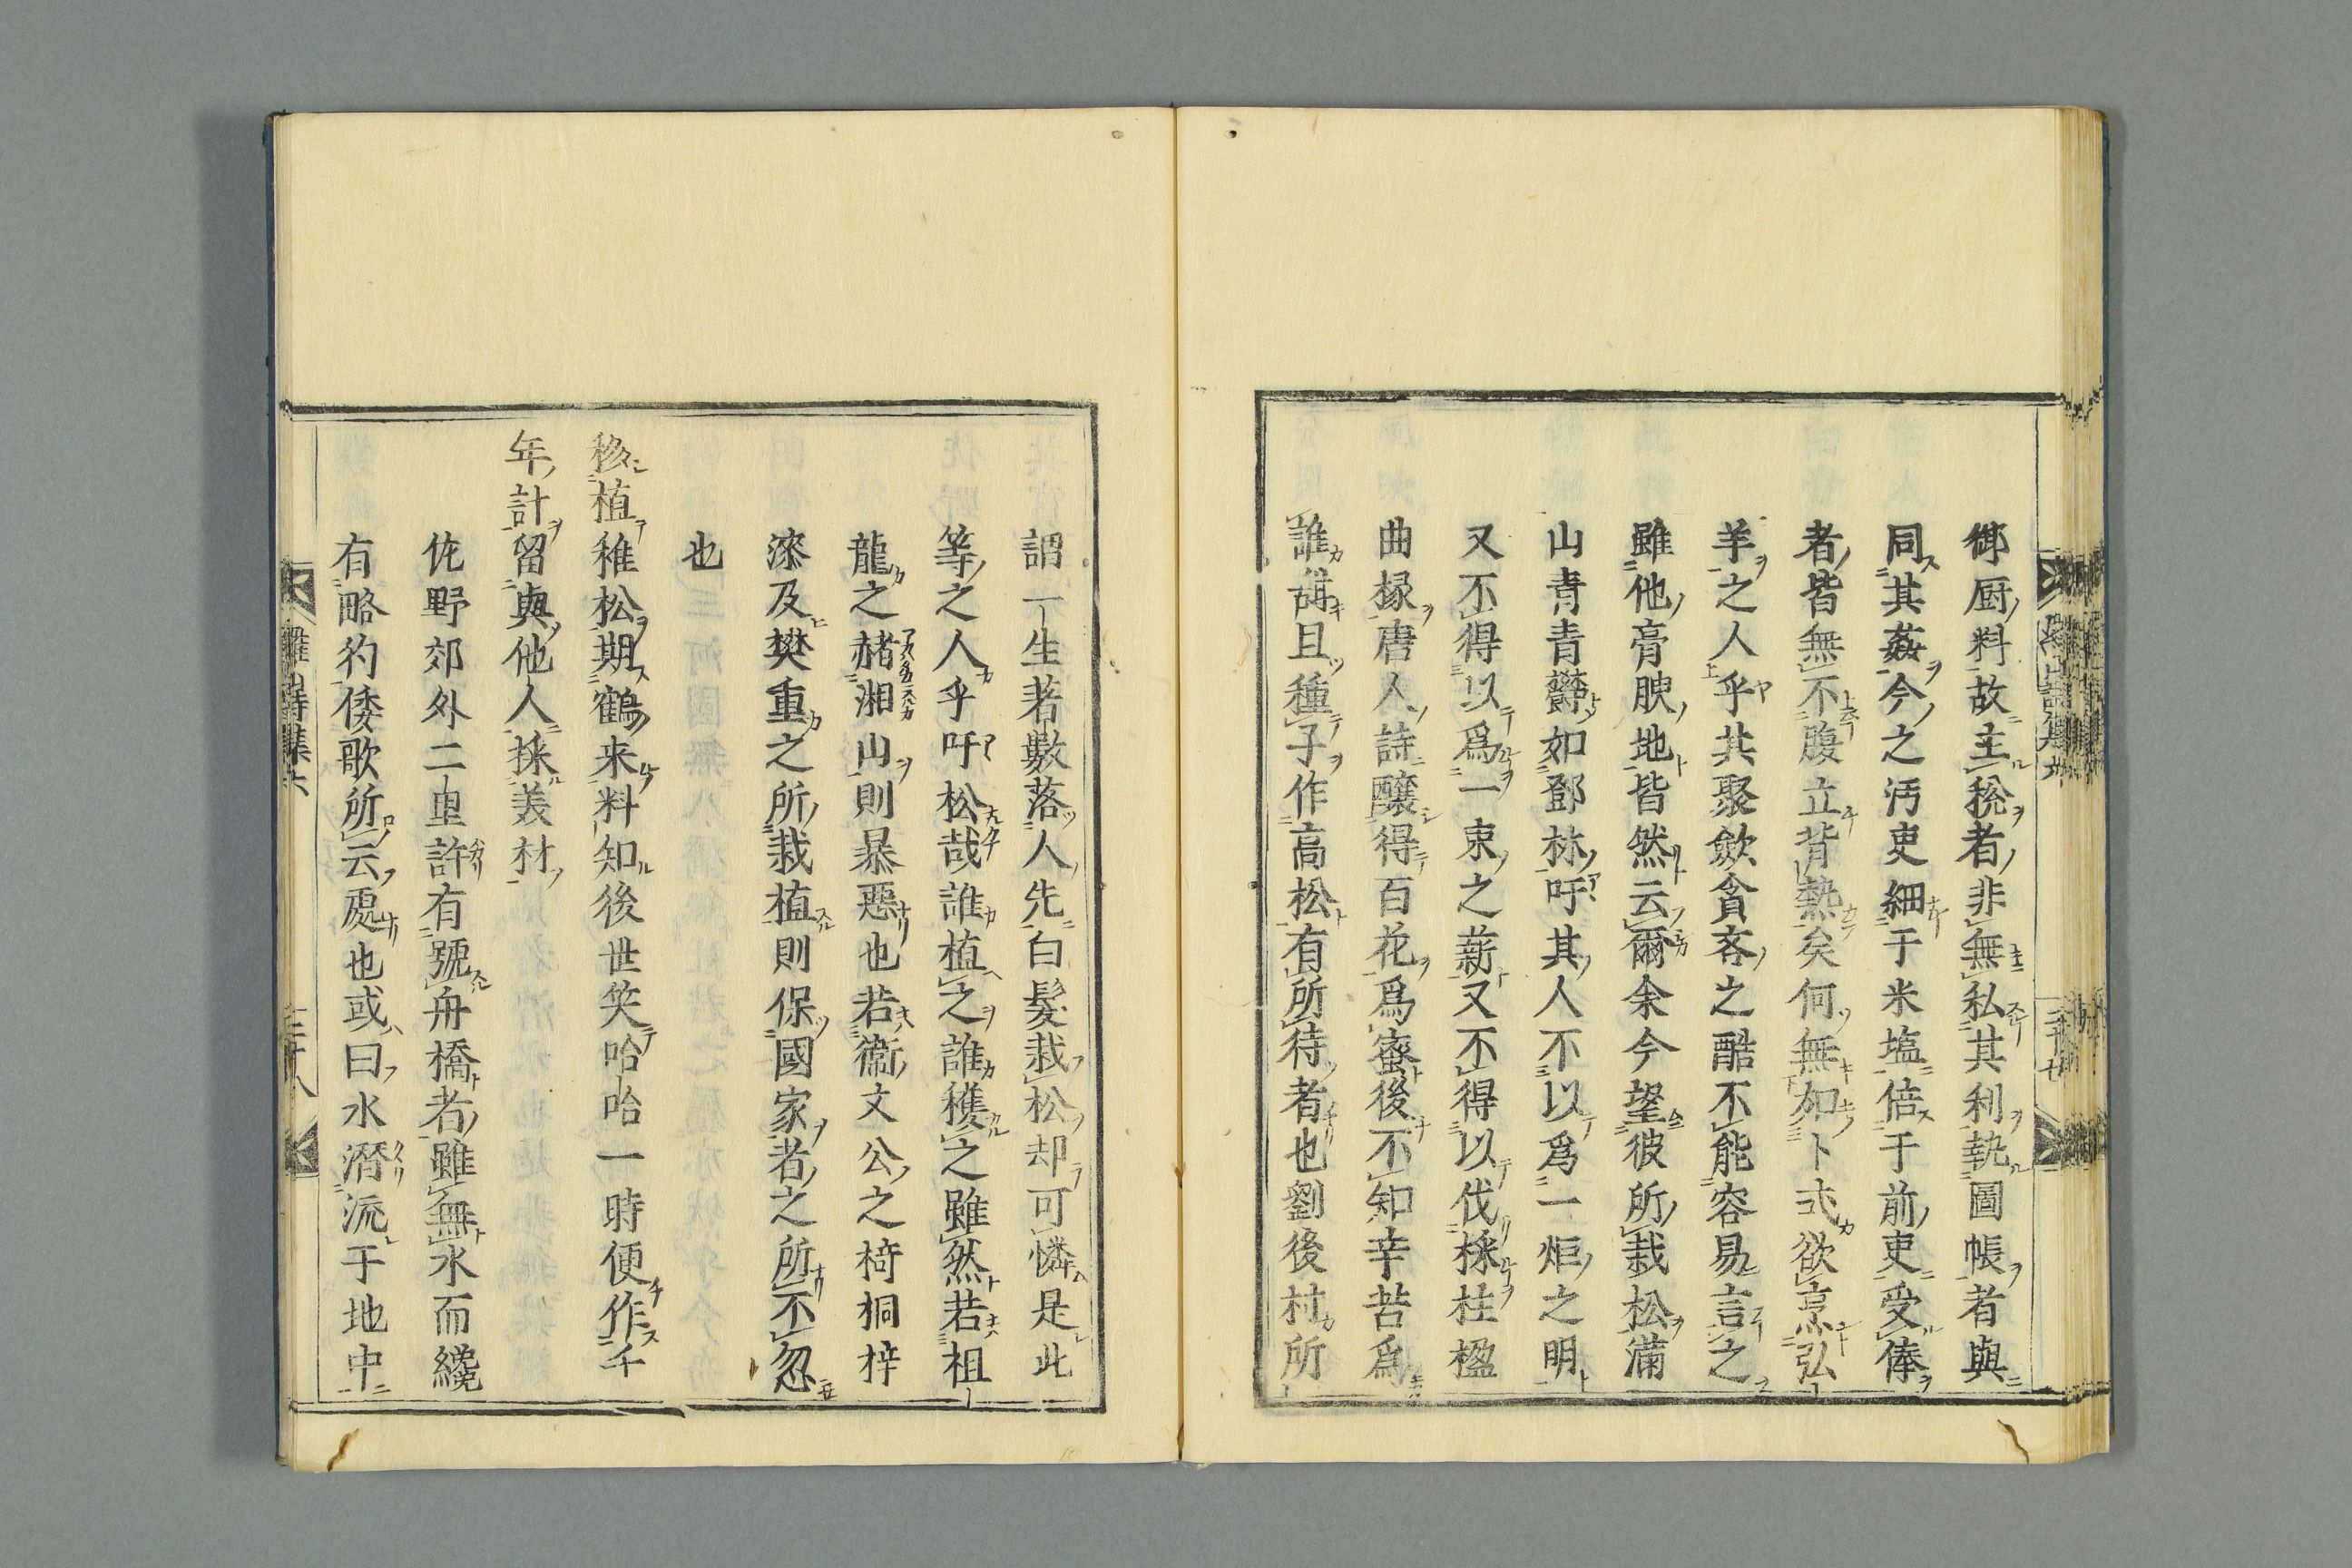 御厨料故主稅者非無私其利執圖帳者與
同其姦今之汚吏細于米塩倍于前吏受俸
者皆無不腹立背熱矣何無如卜式欲烹弘
羊之人乎其聚歛貪吝之酷不能容易言之
雖他膏腴地皆然云爾余今望彼所栽松滿
山青青欝如鄧林吁其人不以爲一炬之明
又不得以爲一束之薪又不得以伐採柱楹
曲椽唐人詩釀得百花爲蜜後不知辛苦爲
誰甜且種子作高松有所待者也劉後村所
謂一生若數落人先白髮栽松却可憐是此
等之人乎吁松哉誰植之誰穫之雖然若祖
龍之赭湘山則暴惡也若衞文公之椅桐梓
漆及樊重之所栽植則保國家者之所不忽
也
移植稚松期鶴来料知後世笑哈哈一時便作千
年計留與他人採美材
佐野郊外二里許有號舟橋者雖無水而纔
有略彴倭歌所云處也或曰水潛流于地中
羅山詩集六
三十八
三十七